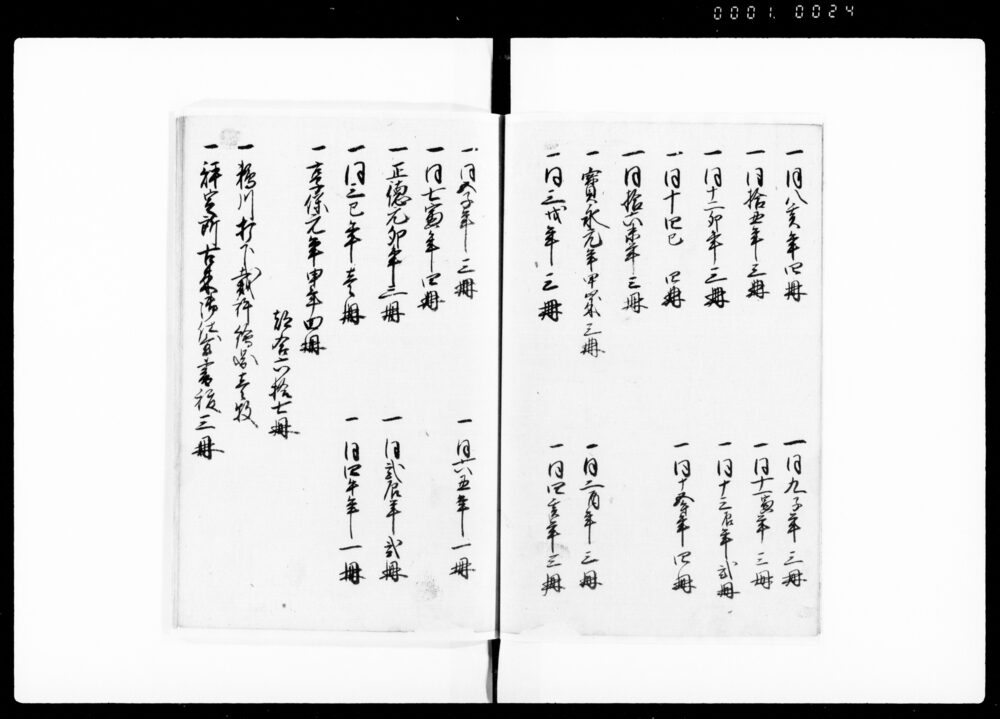 0001 0024
一同八亥年四冊
一同九子年三冊
一同拾五年三冊
一同十一寅年三冊
一同十二卯年三冊
一同十三辰年弐冊
一同十四巳 四冊
一同十五午年四冊
一同拾六未年三冊
一寳永元年甲申 三冊
一同二酉年三冊
一同三戌年三冊
一同四亥年三冊
一同五子年三冊
一同六丑年一冊
一同七寅年四冊
一正徳元卯年三冊
一同弐辰年弐冊
一同三巳年壱冊
一同四午年一冊
一享保元年申年四冊
都合六拾七冊
一 川打下裁許絵図壱枚
一評定所古来 書役三冊